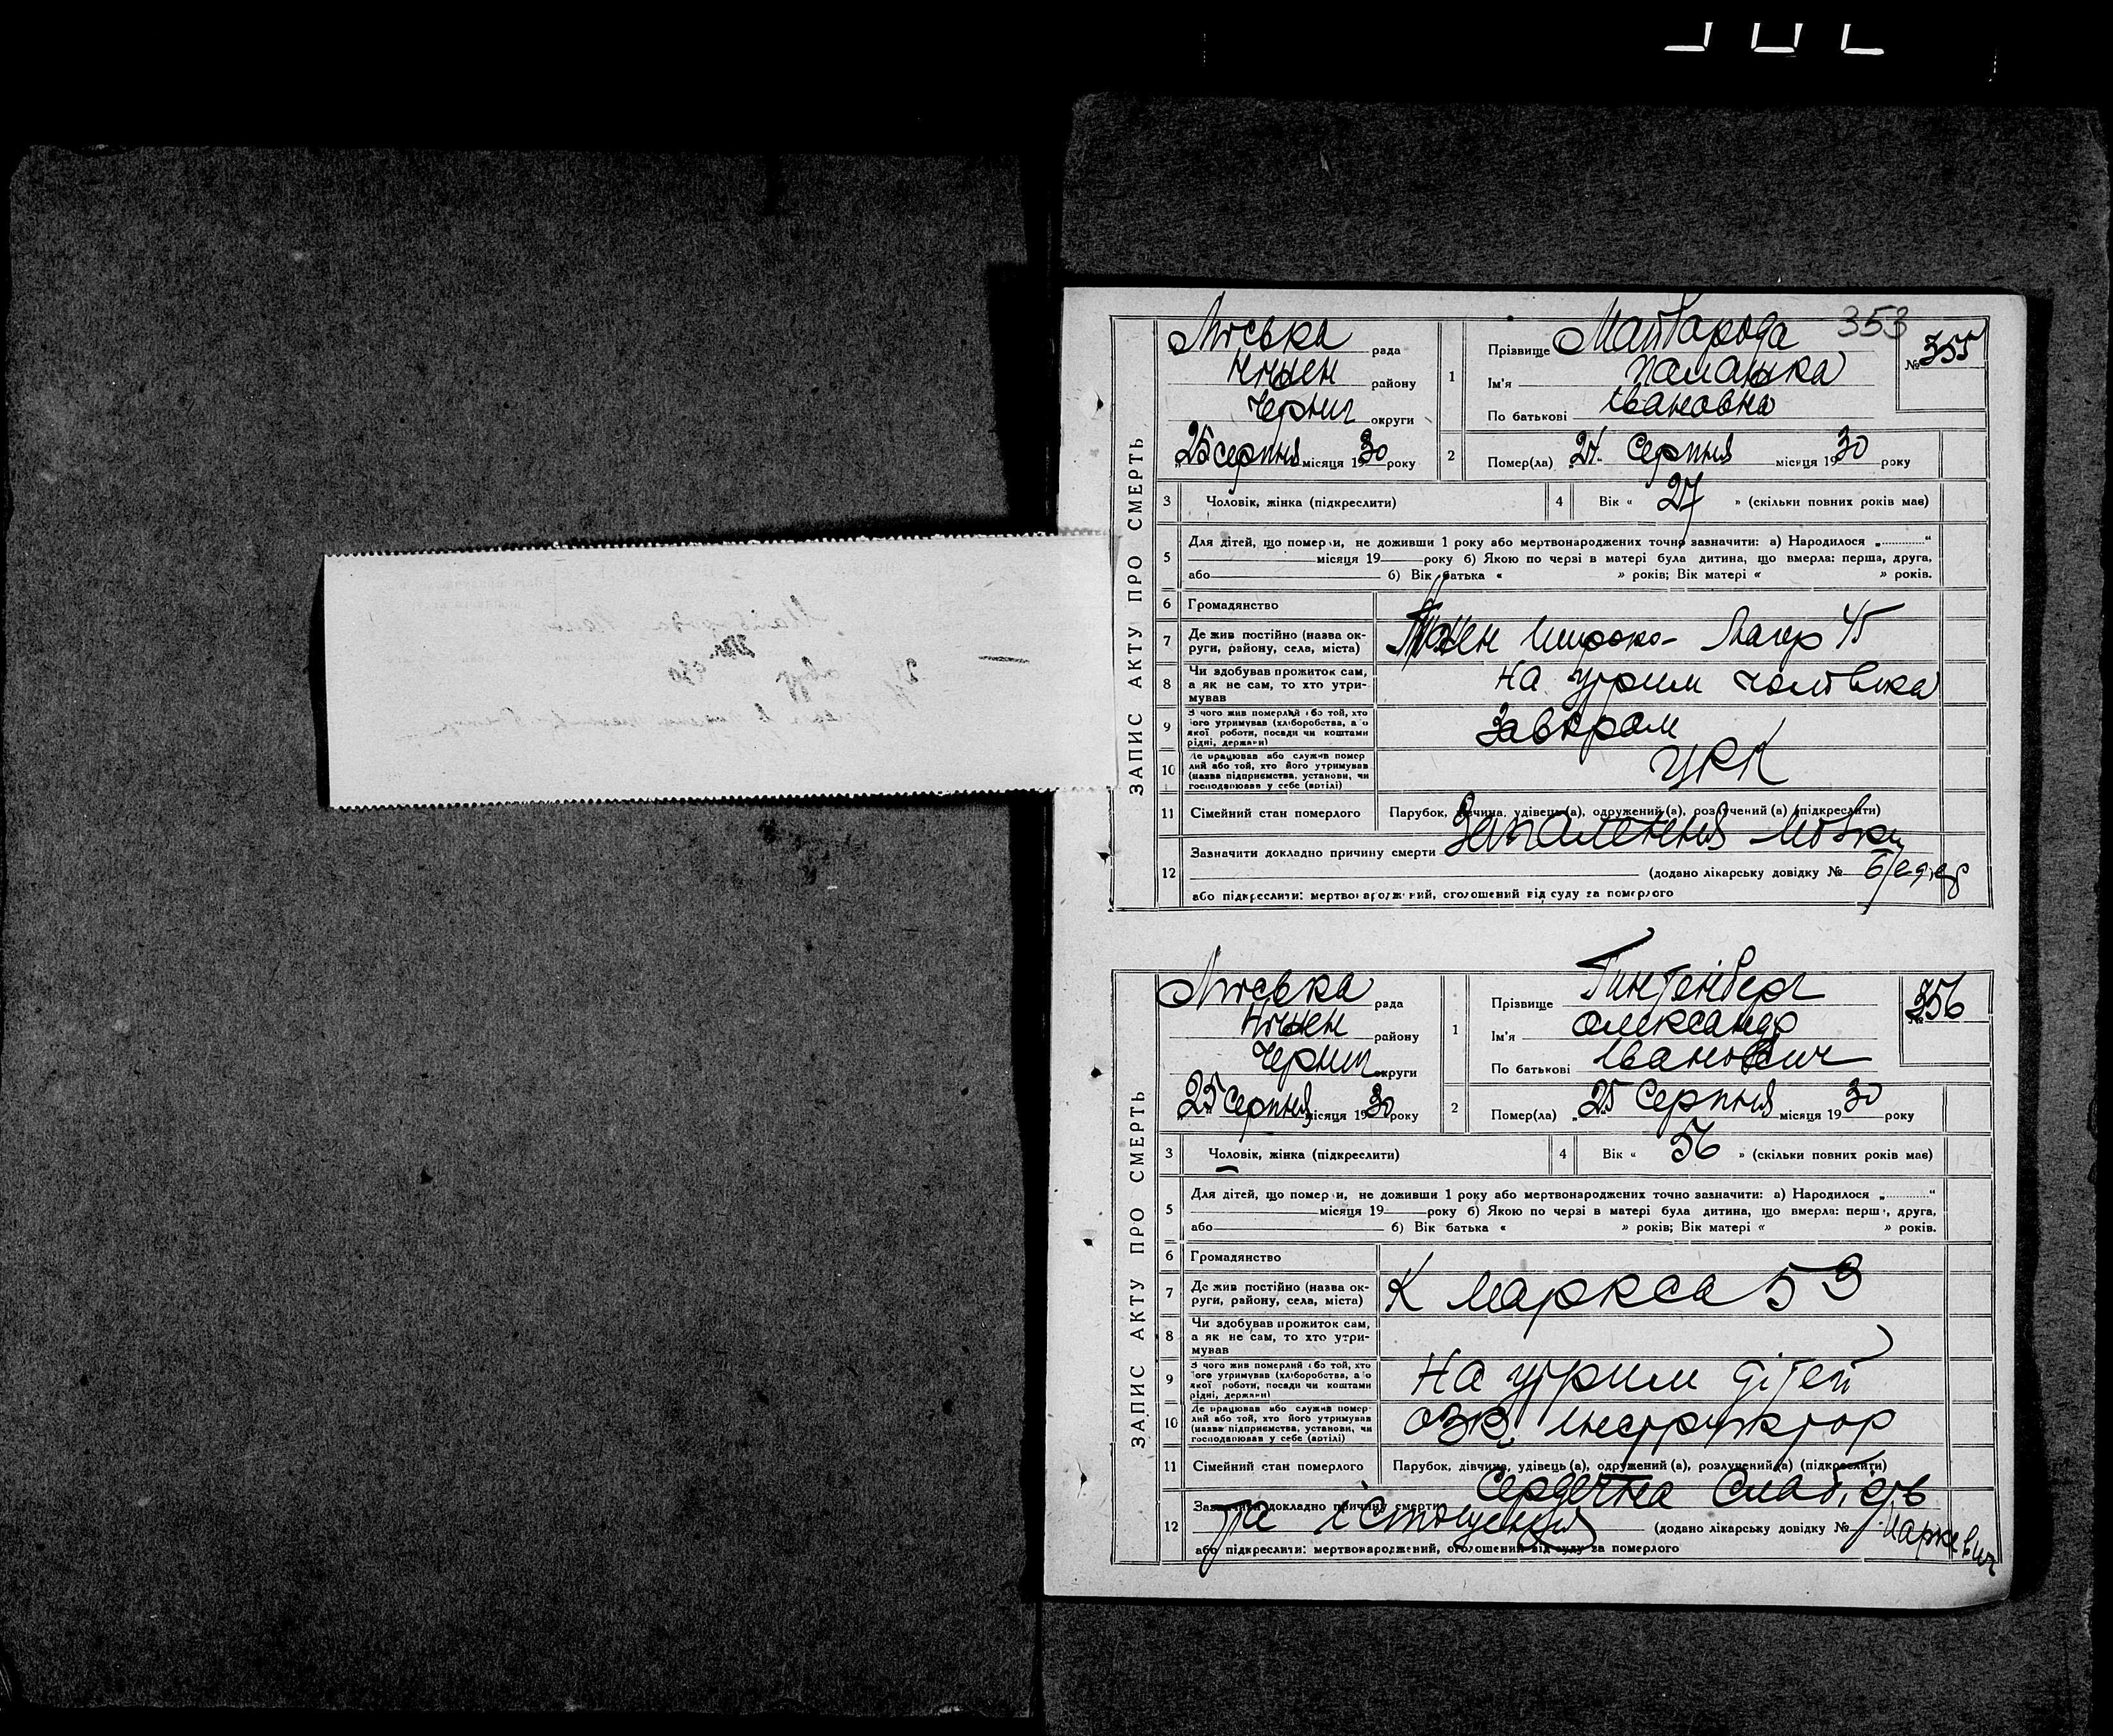 353
ЗАПИС АКТУ ПРО СМЕРТЬ
Міська рада
Ніжен району
Черниг округи
„25 серпня місяця 1930 року
1
Прізвище Майборода
Ім'я Паланка
По батькові Івановна
№ 355
2
Помер(ла) „24 Серпня місяця 1930 року
3 Чоловік, жінка (підкреслити)
4 Вік « 27 » (скільки повних років має)
5 Для дітей, що померли, не доживши 1 року або мертвонароджених точно зазначити: а) Народилося „ “
місяця 19 року б) Якою по черзі в матері була дитина, що вмерла: перша, друга,
або б) Вік батька « » років; Вік матері « » років.
6 Громадянство
7 Де жив постійно (назва ок-
руги, району, села, міста)
Ніжен Широко-Магер 45
8 Чи здобував прожиток сам,
а як не сам, то хто утри-
мував
на утрим чоловіка
9 З чого жив померлий або той, хто
його утримував (хліборобства, а о
якої роботи, посади чи коштами
рідні, держави)
Завкрам
10 Де працював або служив помер
лий або той, хто його утримував
(назва підприємства, установи, чи
господарював у себе (артілі)
ЦРК
11 Сімейний стан померлого Парубок, дівчина, удівець (а), одружений (а), розлучений (а) (підкреслити)
12 Зазначити докладно причину смерти Запалення мозку
(додано лікарську довідку №
або підкреслити: мертвонароджений, оголошений від суду за померлого
ЗАПИС АКТУ ПРО СМЕРТЬ
Міська рада
Ніжен району
Черниг округи
„25 серпня місяця 1930 року
1
Прізвище Гинтенберг
Ім'я Олександр
По батькові Іванович
№ 356
2
Помер(ла) „25 Серпня місяця 1930 року
3 Чоловік, жінка (підкреслити)
4 Вік « 56 » (скільки повних років має)
5 Для дітей, що померли, не доживши 1 року або мертвонароджених точно зазначити: а) Народилося „ “
місяця 19 року б) Якою по черзі в матері була дитина, що вмерла: перша, друга,
або б) Вік батька « » років; Вік матері « » років.
6 Громадянство
7 Де жив постійно (назва ок-
руги, району, села, міста)
К Маркса 53
8 Чи здобував прожиток сам,
а як не сам, то хто утри-
мував
9 З чого жив померлий або той, хто
його утримував (хліборобства, а о
якої роботи, посади чи коштами
рідні, держави)
На утрим дітей
10 Де працював або служив помер-
лий або той, хто його утримував
(назва підприємства, установи, чи
господарював у себе (артілі)
інструктор
11 Сімейний стан померлого Парубок, дівчина, удівець (а), одружений (а), розлучений (а) (підкреслити)
12 Зазначити докладно причину смерти Сердечна слабість
та істощення (додано лікарську довідку № Маркевич
або підкреслити: мертвонароджений, оголошений від суду за померлого